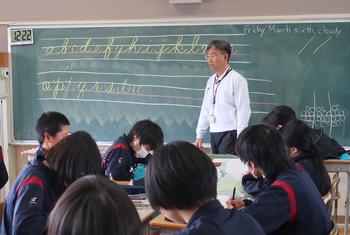 12:22
Friday, March sixth, cloudy
a b c d e f g h i j k l
o p p q r s t u